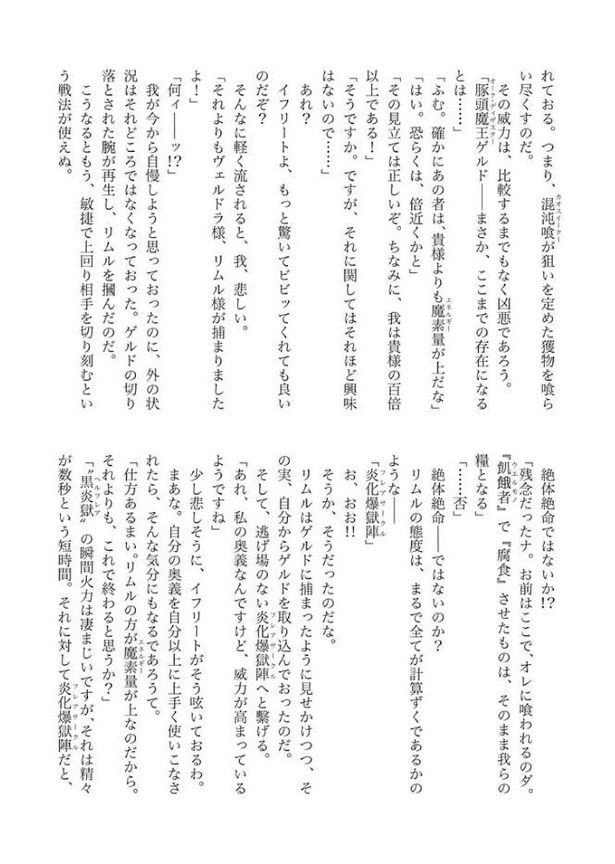 れておる。つまり、混沌喰が狙いを定めた獲物を喰ら
い尽くすのだ。
その威力は、比較するまでもなく凶悪であろう。
「豚頭魔王ゲルド――まさか、ここまでの存在になる
とは……」
「ふむ。確かにあの者は、貴様よりも魔素量が上だな」
「はい。恐らくは、倍近くかと」
「その見立ては正しいぞ。ちなみに、我は貴様の百倍
以上である！」
「そうですか。ですが、それに関してはそれほど興味
はないので……」
あれ？
イフリートよ、もっと驚いてビビッてくれても良い
のだぞ？
そんなに軽く流されると、我、悲しい。
「それよりもヴェルドラ様、リムル様が捕まりました
よ！」
「何ィ――ッ!?」
我が今から自慢しようと思っておったのに、外の状
況はそれどころではなくなっておった。ゲルドの切り
落とされた腕が再生し、リムルを摑んだのだ。
こうなるともう、敏捷で上回り相手を切り刻むとい
う戦法が使えぬ。
絶体絶命ではないか!?
「残念だったナ。お前はここで、オレに喰われるのダ。
『飢餓者』で『腐食』させたものは、そのまま我らの
糧となる」
「……否」
絶体絶命――ではないのか？
リムルの態度は、まるで全てが計算ずくであるかの
ような――
「炎化爆獄陣」
お、おお!!
そうか、そうだったのだな。
リムルはゲルドに捕まったように見せかけつつ、そ
の実、自分からゲルドを取り込んでおったのだ。
そして、逃げ場のない炎化爆獄陣へと繫げる。
「あれ、私の奥義なんですけど、威力が高まっている
ようですね」
少し悲しそうに、イフリートがそう呟いておるわ。
まあな。自分の奥義を自分以上に上手く使いこなさ
れたら、そんな気分にもなるであろうて。
「仕方あるまい。リムルの方が魔素量が上なのだから。
それよりも、これで終わると思うか？」
「〝黒炎獄〟の瞬間火力は凄まじいですが、それは精々
が数秒という短時間。それに対して炎化爆獄陣だと、